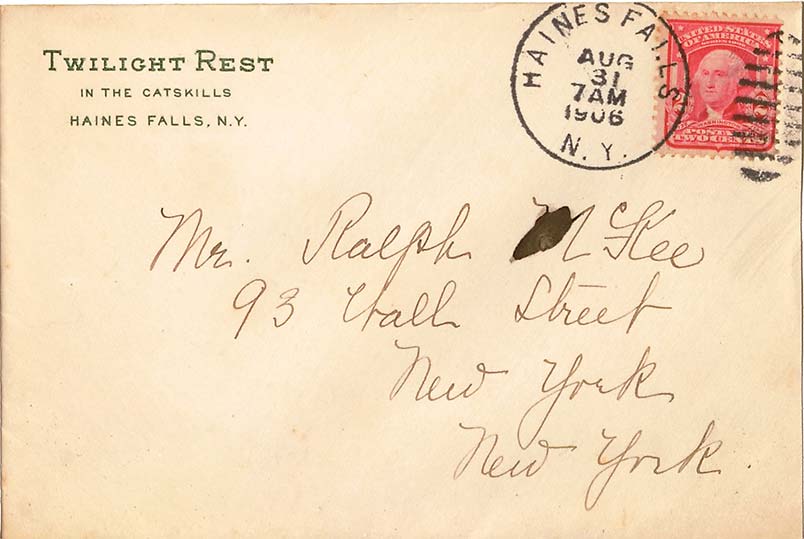 TWILIGHT REST
IN THE CATSKILLS
HAINES FALLS, N.Y.
HAINES FALLS
AUG
31
7AM
1906
N.Y.
UNITED STATES
OF AMERICA
WASHINGTON
POSTAGE
TWO CENTS
Mr. Ralph McKee
93 Wall Street
New York
New York.